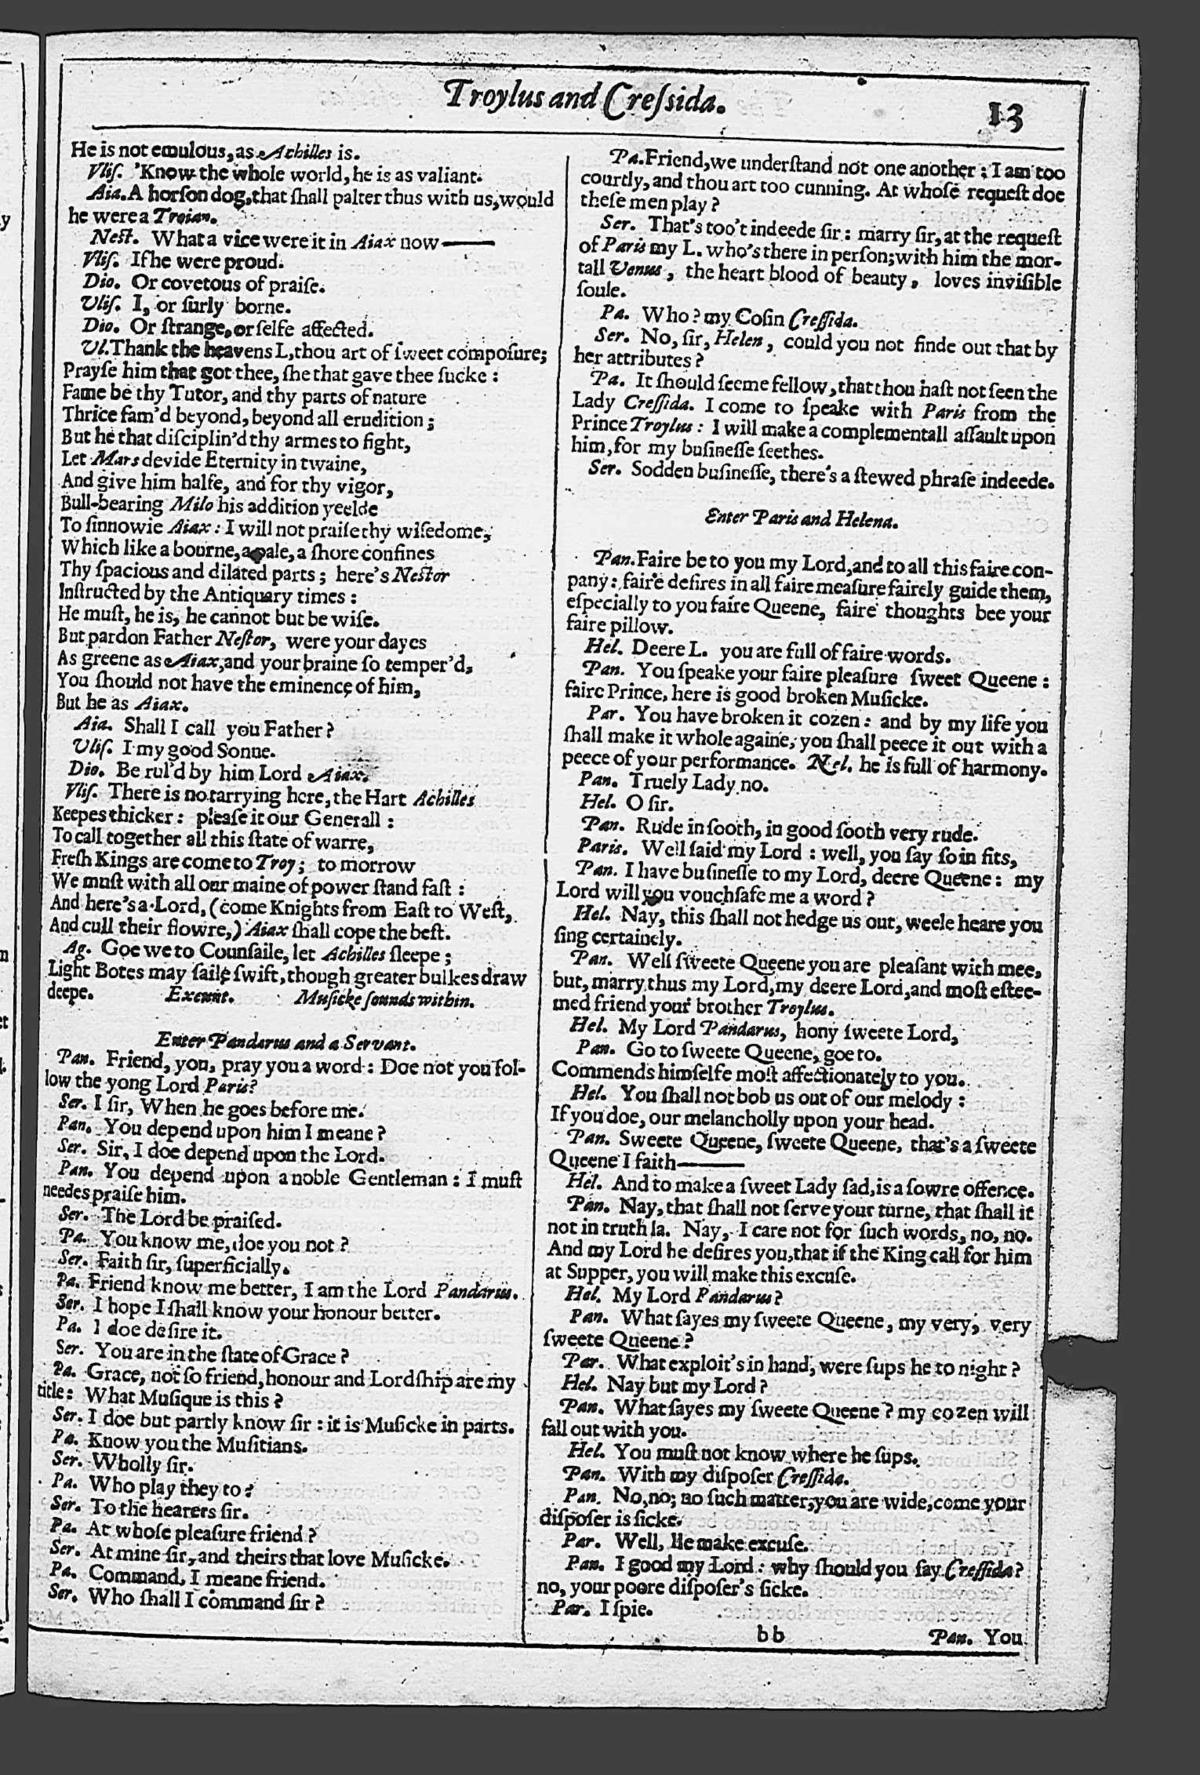 Troylus and Creſsida.
13
He is not emulous, as Achilles is.
Vliſ. 'Know the whole world, he is as valiant.
Aia. A horſon dog, that ſhall palter thus with us, would
he were a Troian.
Neſt. What a vice were it in Aiax now——
Vliſ. If he were proud.
Dio. Or covetous of praiſe.
Vliſ. I, or ſurly borne.
Dio. Or ſtrange, or ſelfe affected.
Vl. Thank the heavens L, thou art of ſweet compoſure;
Prayſe him that got thee, ſhe that gave thee ſucke:
Fame be thy Tutor, and thy parts of nature
Thrice fam'd beyond, beyond all erudition;
But he that diſciplin'd thy armes to fight,
Let Mars devide Eternity in twaine,
And give him halfe, and for thy vigor,
Bull-bearing Milo his addition yeelde
To ſinnowie Aiax: I will not praiſe thy wiſedome,
Which like a bourne, a pale, a ſhore confines
Thy ſpacious and dilated parts; here's Neſtor
Inſtructed by the Antiquary times:
He muſt, he is, he cannot but be wiſe.
But pardon Father Neſtor, were your dayes
As greene as Aiax, and your braine ſo temper'd,
You ſhould not have the eminence of him,
But he as Aiax.
Aia. Shall I call you Father?
Vliſ. I my good Sonne.
Dio. Be rul'd by him Lord Aiax.
Vliſ. There is no tarrying here, the Hart Achilles
Keepes thicker: pleaſe it our Generall:
To call together all this ſtate of warre,
Freſh Kings are come to Troy; to morrow
We muſt with all our maine of power ſtand faſt:
And here's a Lord, (come Knights from Eaſt to Weſt,
And cull their flowre,) Aiax ſhall cope the beſt.
Ag. Goe we to Counſaile, let Achilles ſleepe;
Light Botes may ſaile ſwift, though greater bulkes draw
deepe. Exeunt. Muſicke ſounds within.
Enter Pandarus and a Servant.
Pan. Friend, you, pray you a word: Doe not you fol-
low the yong Lord Paris?
Ser. I ſir, When he goes before me.
Pan. You depend upon him I meane?
Ser. Sir, I doe depend upon the Lord.
Pan. You depend upon a noble Gentleman: I muſt
needes praiſe him.
Ser. The Lord be praiſed.
Pa. You know me, doe you not?
Ser. Faith ſir, ſuperficially.
Pa. Friend know me better, I am the Lord Pandarus.
Ser. I hope I ſhall know your honour better.
Pa. I doe deſire it.
Ser. You are in the ſtate of Grace?
Pa. Grace, not ſo friend, honour and Lordſhip are my
title: What Muſique is this?
Ser. I doe but partly know ſir: it is Muſicke in parts.
Pa. Know you the Muſitians.
Ser. Wholly ſir.
Pa. Who play they to?
Ser. To the hearers ſir.
Pa. At whoſe pleaſure friend?
Ser. At mine ſir, and theirs that love Muſicke.
Pa. Command, I meane friend.
Ser. Who ſhall I command ſir?
Pa. Friend, we underſtand not one another: I am too
courtly, and thou art too cunning. At whoſe requeſt doe
theſe men play?
Ser. That's too't indeede ſir: marry ſir, at the requeſt
of Paris my L. who's there in perſon; with him the mor-
tall Venus, the heart blood of beauty, loves inviſible
ſoule.
Pa. Who? my Coſin Creſſida.
Ser. No, ſir, Helen, could you not finde out that by
her attributes?
Pa. It ſhould ſeeme fellow, that thou haſt not ſeen the
Lady Creſſida. I come to ſpeake with Paris from the
Prince Troylus: I will make a complementall aſſault upon
him, for my buſineſſe ſeethes.
Ser. Sodden buſineſſe, there's a ſtewed phraſe indeede.
Enter Paris and Helena.
Pan. Faire be to you my Lord, and to all this faire con-
pany: faire deſires in all faire meaſure fairely guide them,
eſpecially to you faire Queene, faire thoughts bee your
faire pillow.
Hel. Deere L. you are full of faire words.
Pan. You ſpeake your faire pleaſure ſweet Queene:
faire Prince, here is good broken Muſicke.
Par. You have broken it cozen: and by my life you
ſhall make it whole againe, you ſhall peece it out with a
peece of your performance. Nel. he is full of harmony.
Pan. Truely Lady no.
Hel. O ſir.
Pan. Rude in ſooth, in good ſooth very rude.
Paris. Well ſaid my Lord: well, you ſay ſo in fits,
Pan. I have buſineſſe to my Lord, deere Queene: my
Lord will you vouchſafe me a word?
Hel. Nay, this ſhall not hedge us out, weele heare you
ſing certainely.
Pan. Well ſweete Queene you are pleaſant with mee,
but, marry thus my Lord, my deere Lord, and moſt eſtee-
med friend your brother Troylus.
Hel. My Lord Pandarus, hony ſweete Lord,
Pan. Go to ſweete Queene, goe to.
Commends himſelfe moſt affectionately to you.
Hel. You ſhall not bob us out of our melody:
If you doe, our melancholly upon your head.
Pan. Sweete Queene, ſweete Queene, that's a ſweete
Queene I faith——
Hel. And to make a ſweet Lady ſad, is a ſowre offence.
Pan. Nay, that ſhall not ſerve your turne, that ſhall it
not in truth la. Nay, I care not for ſuch words, no, no.
And my Lord he deſires you, that if the King call for him
at Supper, you will make this excuſe.
Hel. My Lord Pandarus?
Pan. What ſayes my ſweete Queene, my very, very
ſweete Queene?
Par. What exploit's in hand, were ſups he to night?
Hel. Nay but my Lord?
Pan. What ſayes my ſweete Queene? my cozen will
fall out with you.
Hel. You muſt not know where he ſups.
Pan. With my diſpoſer Creſſida.
Pan. No, no; no ſuch matter, you are wide, come your
diſpoſer is ſicke.
Par. Well, Ile make excuſe.
Pan. I good my Lord: why ſhould you ſay Creſſida?
no, your poore diſpoſer's ſicke.
Par. I ſpie.
bb
Pan. You